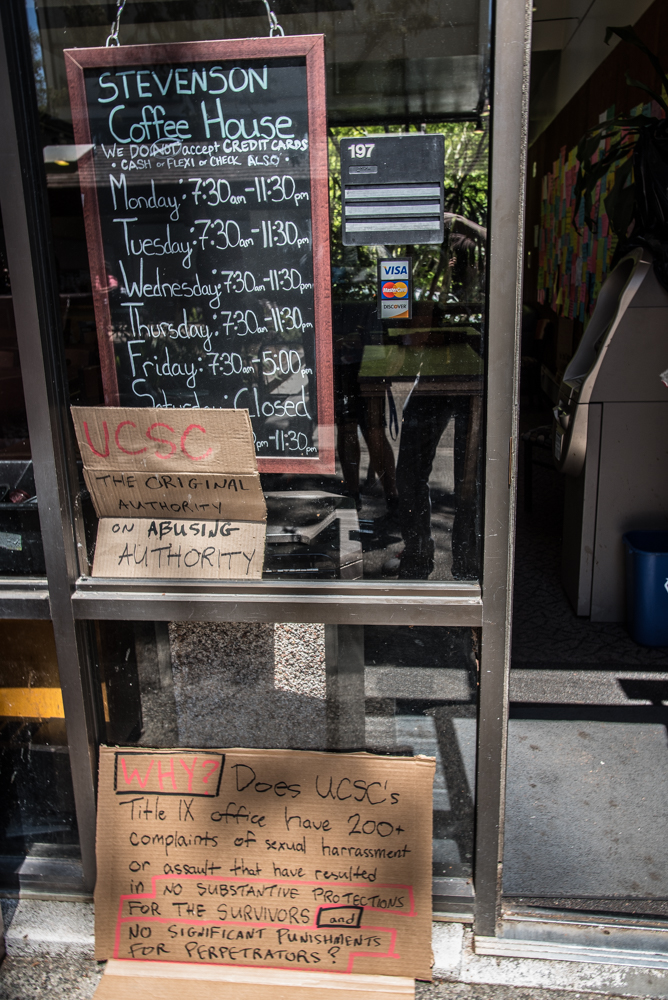 STEVENSON
Coffee House
WE DO NOT accept CREDIT CARDS
• CASH or FLEXI or CHECK ALSO •
Monday: 7:30am-11:30pm
Tuesday: 7:30am-11:30pm
Wednesday: 7:30am-11:30pm
Thursday: 7:30am-11:30pm
Friday: 7:30am-5:00pm
Saturday: Closed
pm-11:30pm
197
VISA
MasterCard
DISCOVER
UCSC
THE ORIGINAL
AUTHORITY
ON ABUSING
AUTHORITY
WHY? Does UCSC's
Title IX office have 200+
complaints of sexual harrassment
or assault that have resulted
in NO SUBSTANTIVE PROTECTIONS
FOR THE SURVIVORS and
NO SIGNIFICANT PUNISHMENTS
FOR PERPETRATORS?